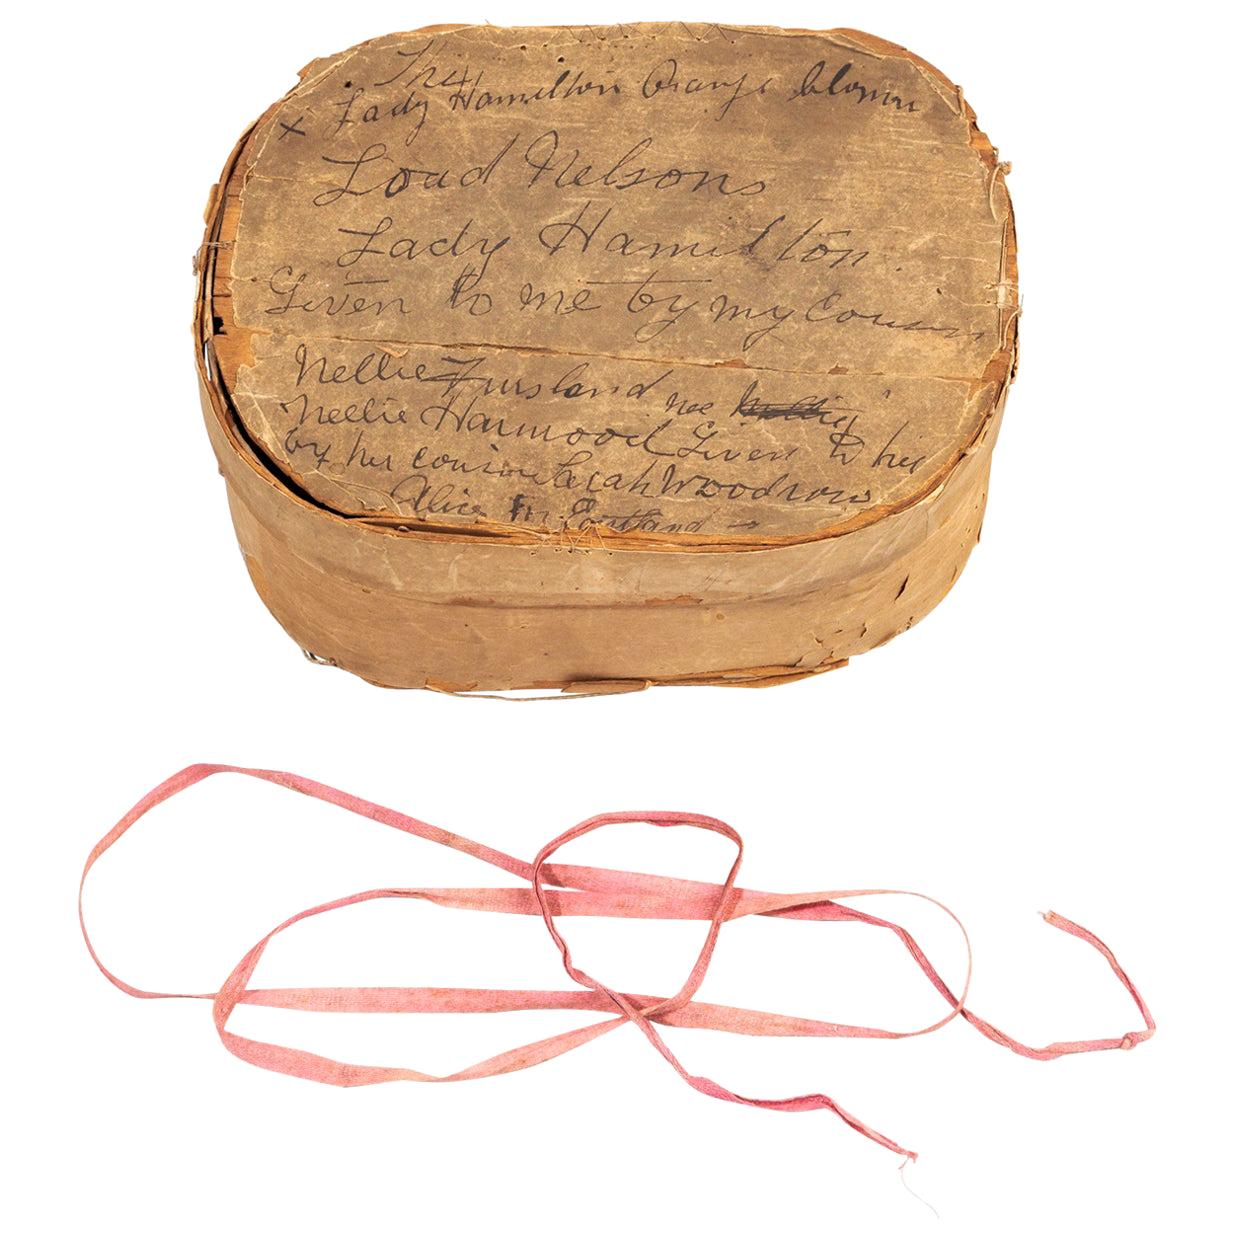 The
x Lady Hamilton Orange blossom
Load Nelsons
Lady Hamilton
Given to me by my cousin
Nellie Fursland nee
Nellie Harwood Given to her
by her cousin Sarah Woodrow
Alice M Eastland